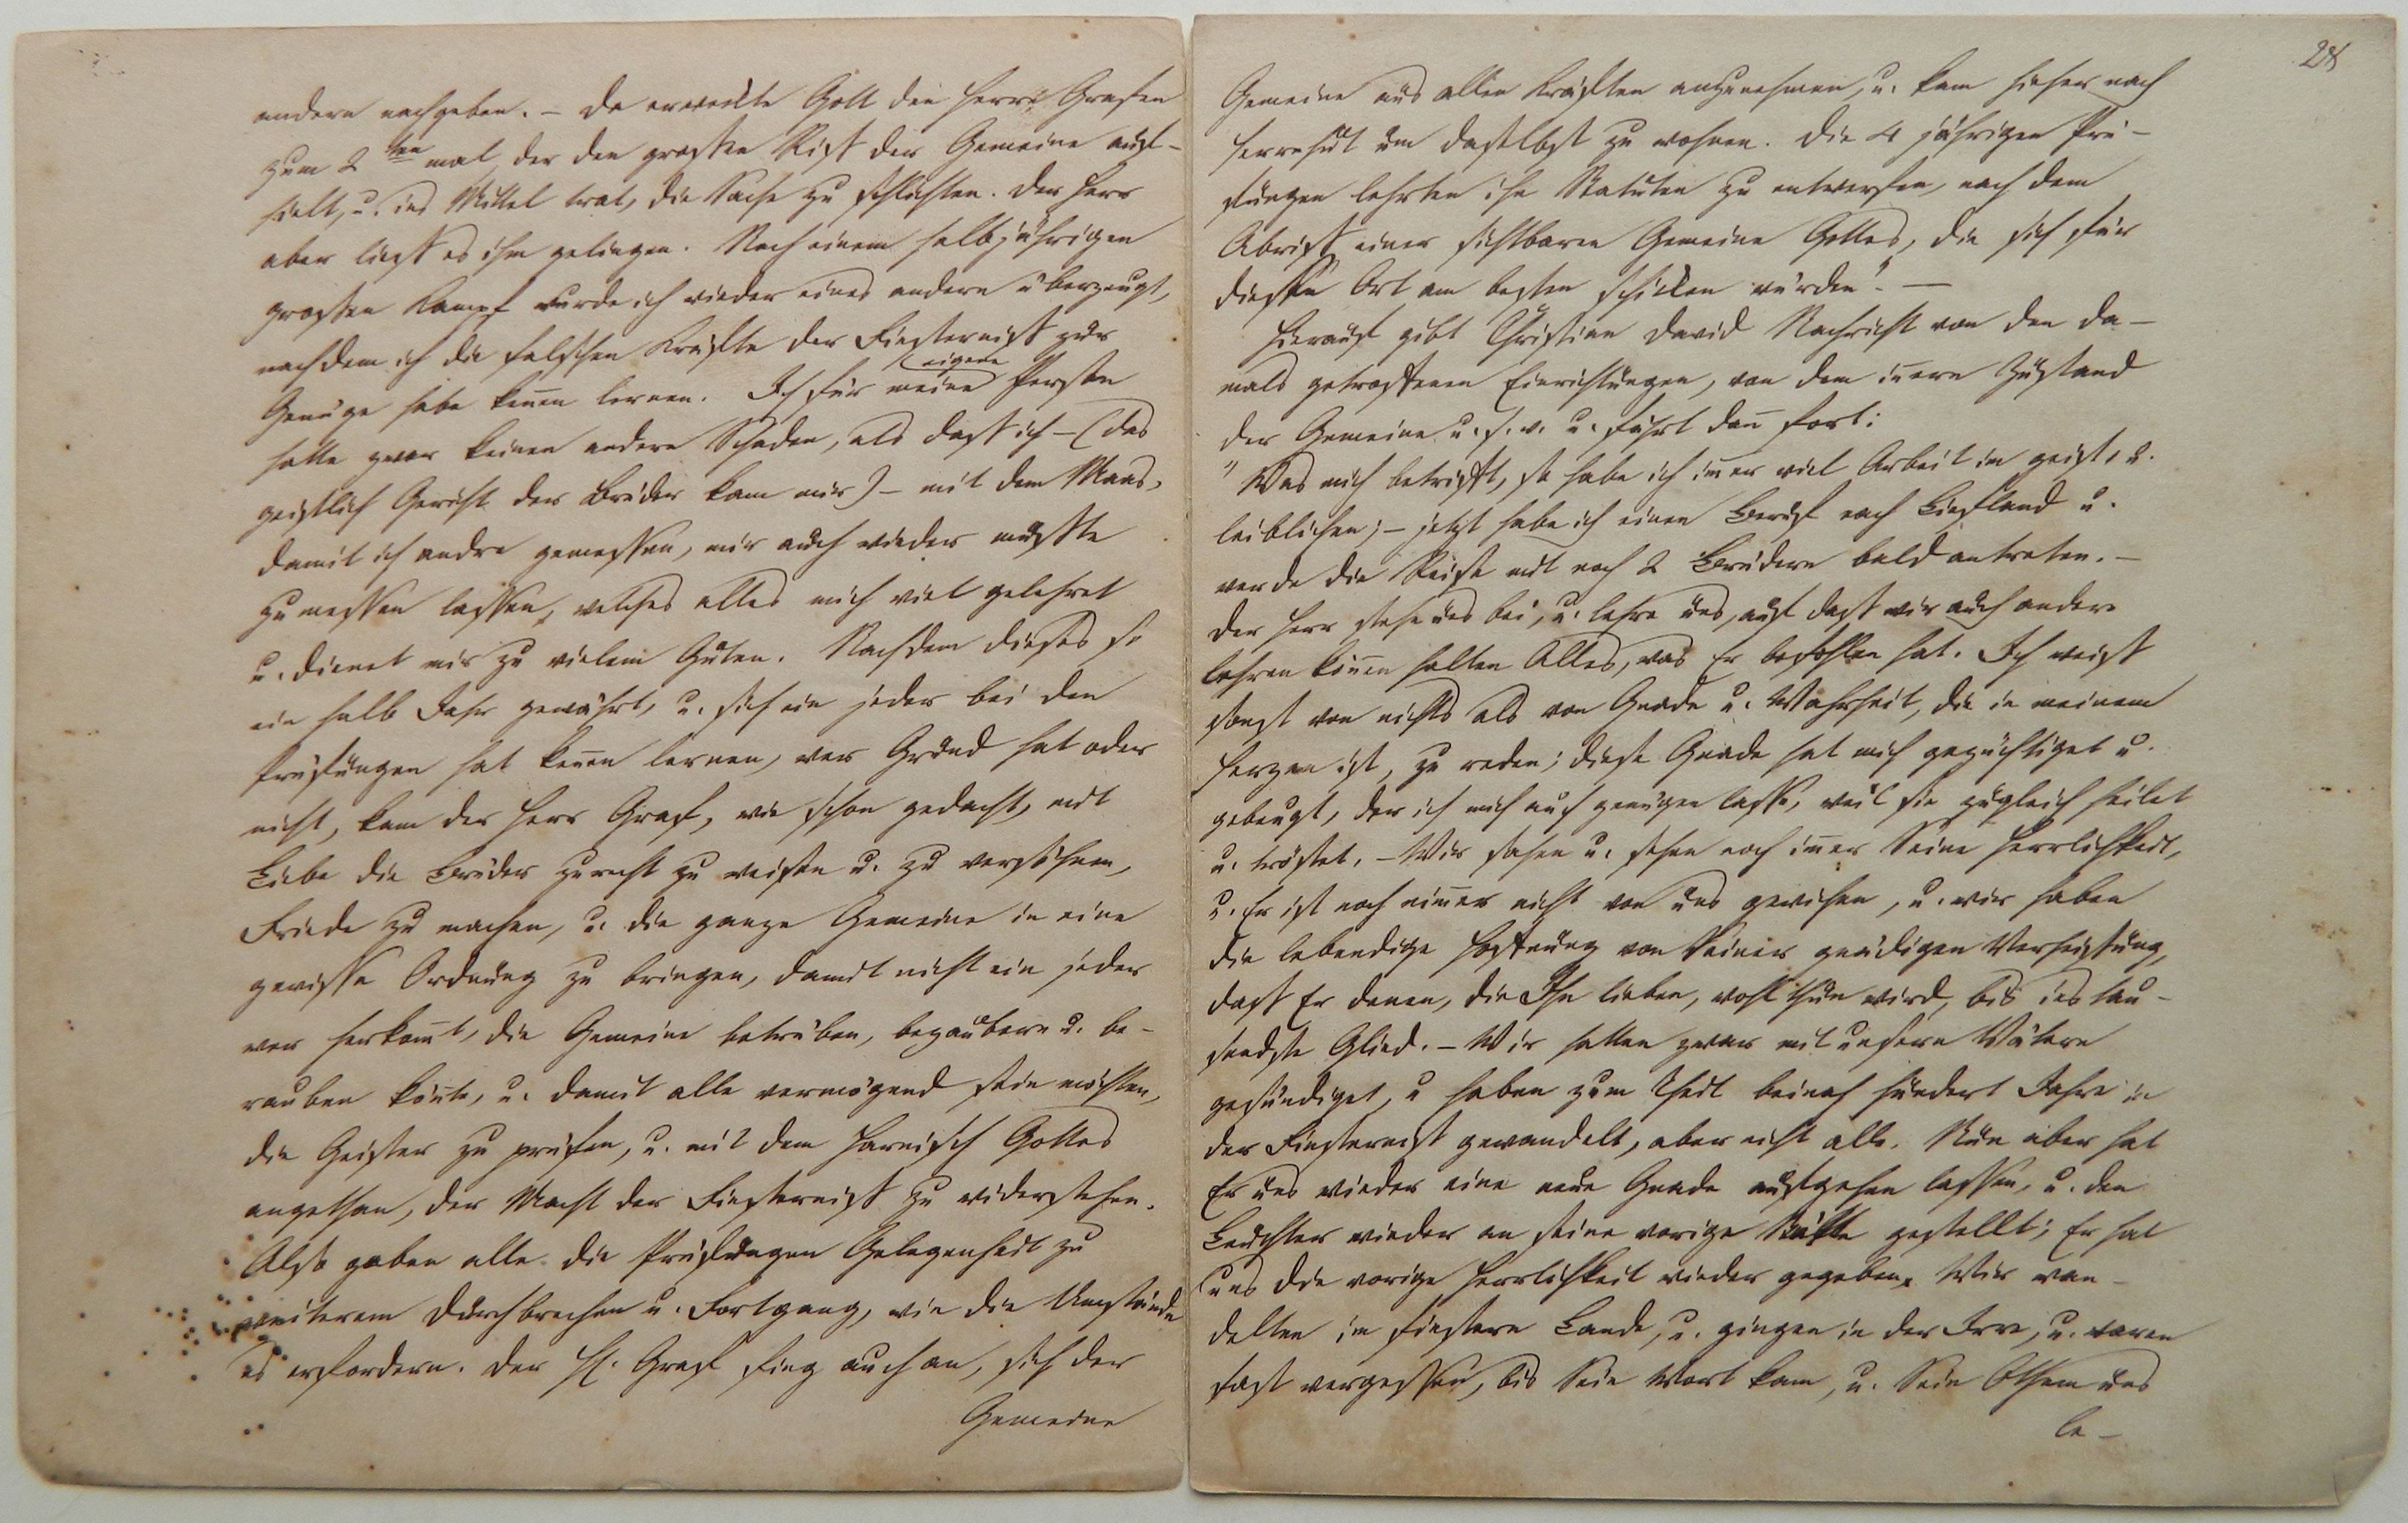 andern nachgeben. – Da erweckte Gott den Herrn Grafen
zum 2ten mal, der den grossen Riss der Gemeine auf-
hielt, u. ins Mittel trat, die Sache zu schlichten. Der Herr
aber liess es ihm gelingen. Nach einem halbjährigen
grossen Kampf wurde ich wieder eines andern überzeugt,
nachdem ich die falschen Kräfte der Finsterniss zur
Genüge habe keñen lernen. Ich für meine eigene Person
hatte zwar keinen andern Schaden, als dass ich – (das
geistlich Gericht der Brüder kam mir) – mit dem Maas,
damit ich andre gemessen, mir auch wieder musste
zu messen lassen, welches alles mich viel gelehret
u. dienet mir zu vielem Guten. Nachdem dieses so
ein halb Jahr gewährt, u. sich ein jeder bei den
Prüfungen hat keñen lernen, wer Grund hat oder
nicht, kam der Herr Graf, wie schon gedacht, mit
Liebe die Brüder zurecht zu weisen u. zu versöhnen,
Friede zu machen, u. die ganze Gemeine in eine
gewisse Ordnung zu bringen, damit nicht ein jeder
wer herkom̃t, die Gemeine betrüben, bezaubern u. be-
rauben köñte, u. damit alle vermögend sein möchten,
die Geister zu prüfen, u. mit dem Harnisch Gottes
angethan, der Macht der Finsterniss zu widerstehen.
Also gaben alle die Prüfungen Gelegenheit zu
weiterem Durchbrechen u. Fortgang, wie die Umstände
es erfordern. Der H. Graf fing auch an, sich der
Gemeine
28
Gemeine aus allen Kräften anzunehmen, u. kam hieher nach
Herrnhut um daselbst zu wohnen. Die 4 jährigen Prü-
fungen lehrten ihn Statuten zu entwerfen, nach dem
Abriss einer sichtbaren Gemeine Gottes, die sich für
diesen Ort am besten schicken würden". —
Hierauf gibt Christian David Nachricht von den da-
mals getroffenen Einrichtungen, von dem iñern Zustand
der Gemeine u. s. w. u. fährt dañ fort:
"Was mich betrifft, so habe ich im̃er viel Arbeit im geistl. u.
leiblichen; – jetzt habe ich einen Beruf nach Liefland u.
werde die Reise mit noch 2 Brüdern bald antreten. –
Der Herr stehe uns bei, u. lehre uns, auf dass wir auch andere
lehren köñen halten Alles, was Er befohlen hat. Ich weiss
sonst von nichts als von Gnade u. Wahrheit, die in meinem
Herzen ist, zu reden; diese Gnade hat mich gezüchtiget u.
gebeugt, der ich mich auch genügen lasse, weil sie zugleich heilet
u. tröstet. – Wir sahen u. sehen noch im̃er Seine Herrlichkeit,
u. Er ist noch nim̃er nicht von uns gewichen, u. wir haben
die lebendige Hoffnung von Seiner gnädigen Verheissung,
dass Er denen, die Ihn lieben, wohl thun wird, bis ins tau-
sendste Glied. – Wir hatten zwar mit unsern Vätern
gesündiget, u haben zum Theil beinah hundert Jahre in
der Finsterniss gewandelt, aber nicht alle. Nun aber hat
Er uns wieder eine neue Gnade aufgehen lassen, u. den
Leuchter wieder an seine vorige Stätte gestellt; Er hat
uns die vorige Herrlichkeit wieder gegeben. Wir wan-
delten im finstern Lande, u. gingen in der Irre, u. waren
fast vergessen, bis Sein Wort kam, u. Sein Othem uns
be-